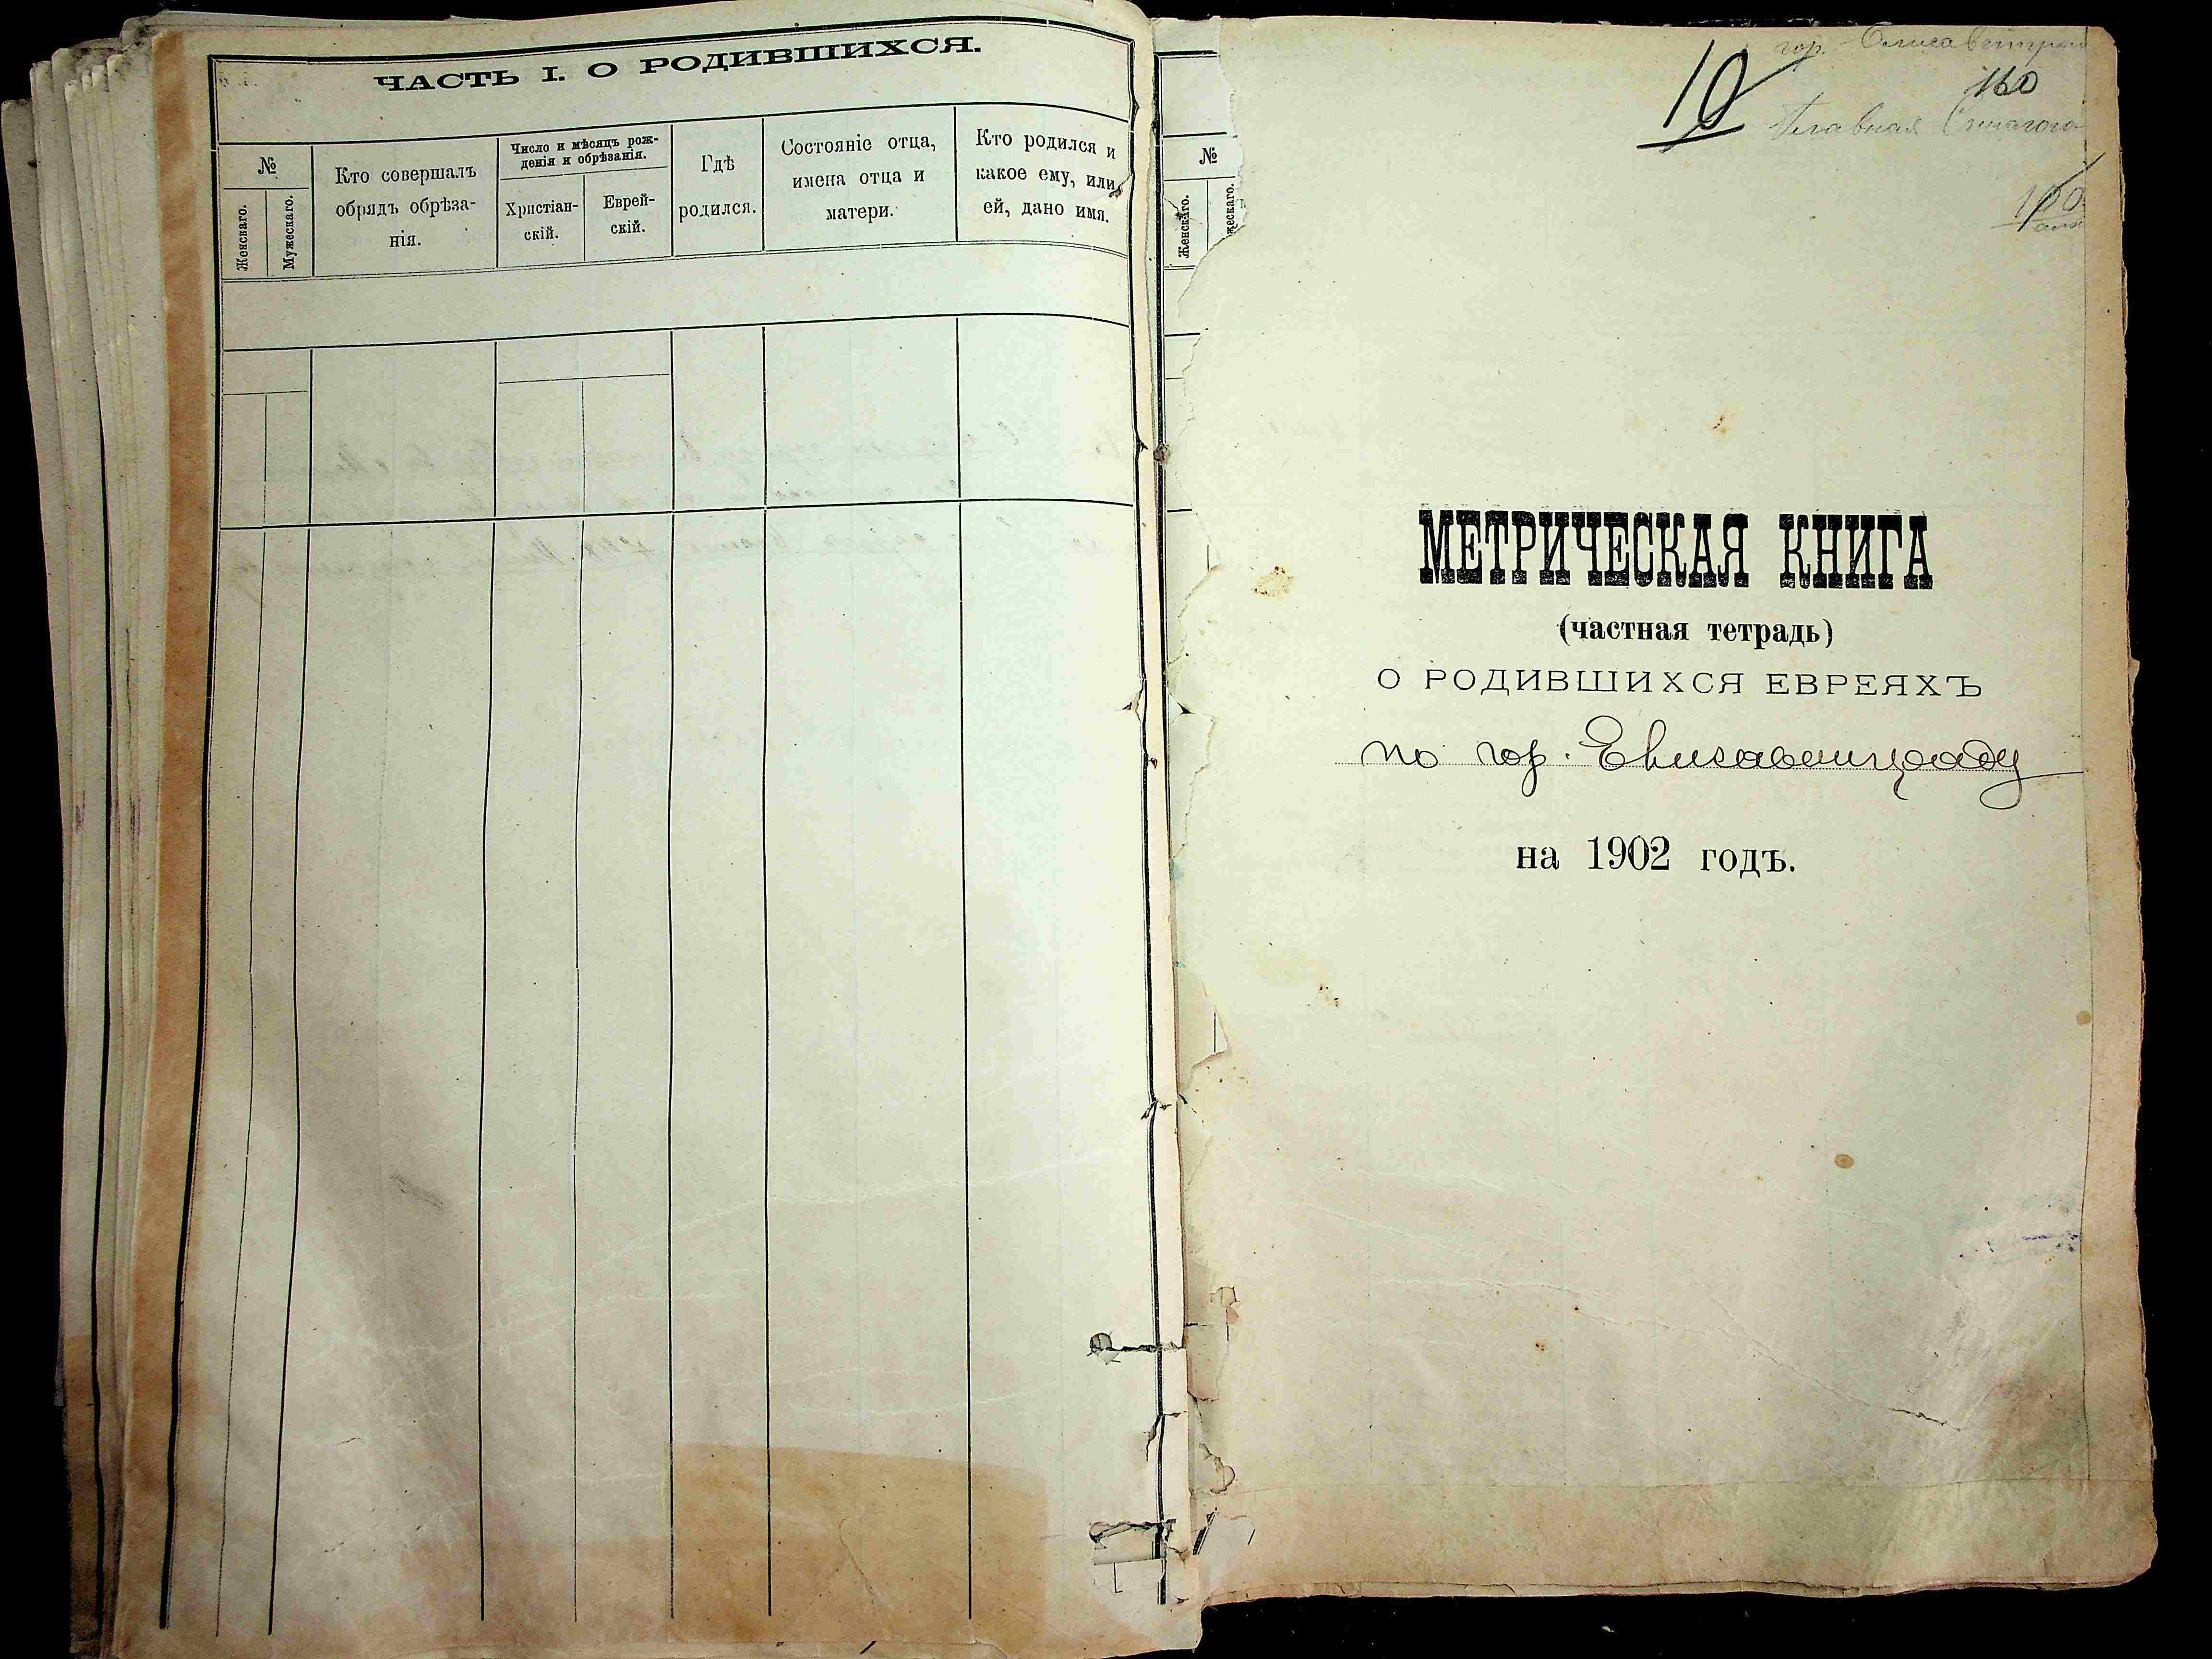 ЧАСТЬ I. О РОДИВШИХСЯ.
№
Женскаго.
Мужескаго.
Кто совершалъ
обрядъ обрѣза-
нія.
Число и мѣсяцъ рож-
денія и обрѣзанія.
Христіан-
скій.
Еврей-
скій.
Гдѣ
родился.
Состояніе отца,
имена отца и
матери.
Кто родился и
какое ему, или
ей, дано имя.
№
Женскаго.
жескаго.
гор. Елисаветград
10
160
Главная Синагога
МЕТРИЧЕСКАЯ КНИГА
(частная тетрадь)
О РОДИВШИХСЯ ЕВРЕЯХЪ
по гор. Елисаветграду
на 1902 годъ.